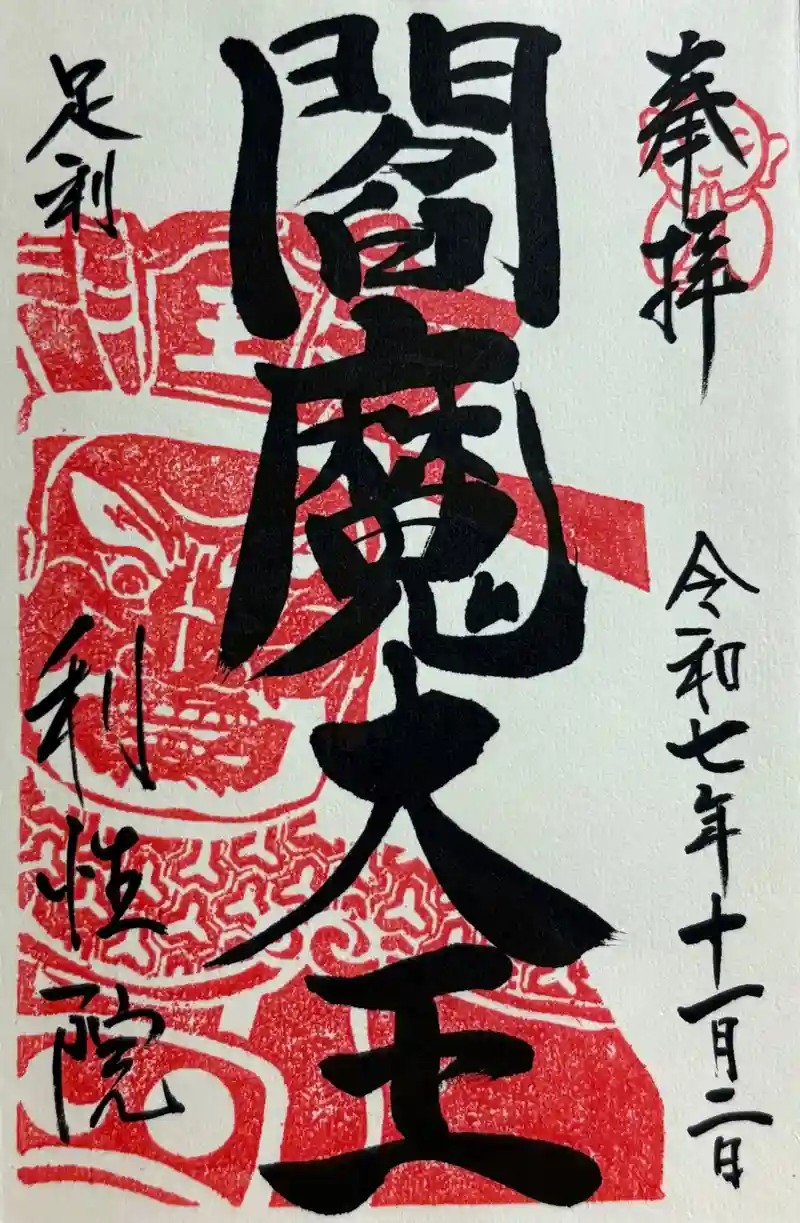 奉拝
令和七年十一月二日
閻魔大王
足利
利性院
王